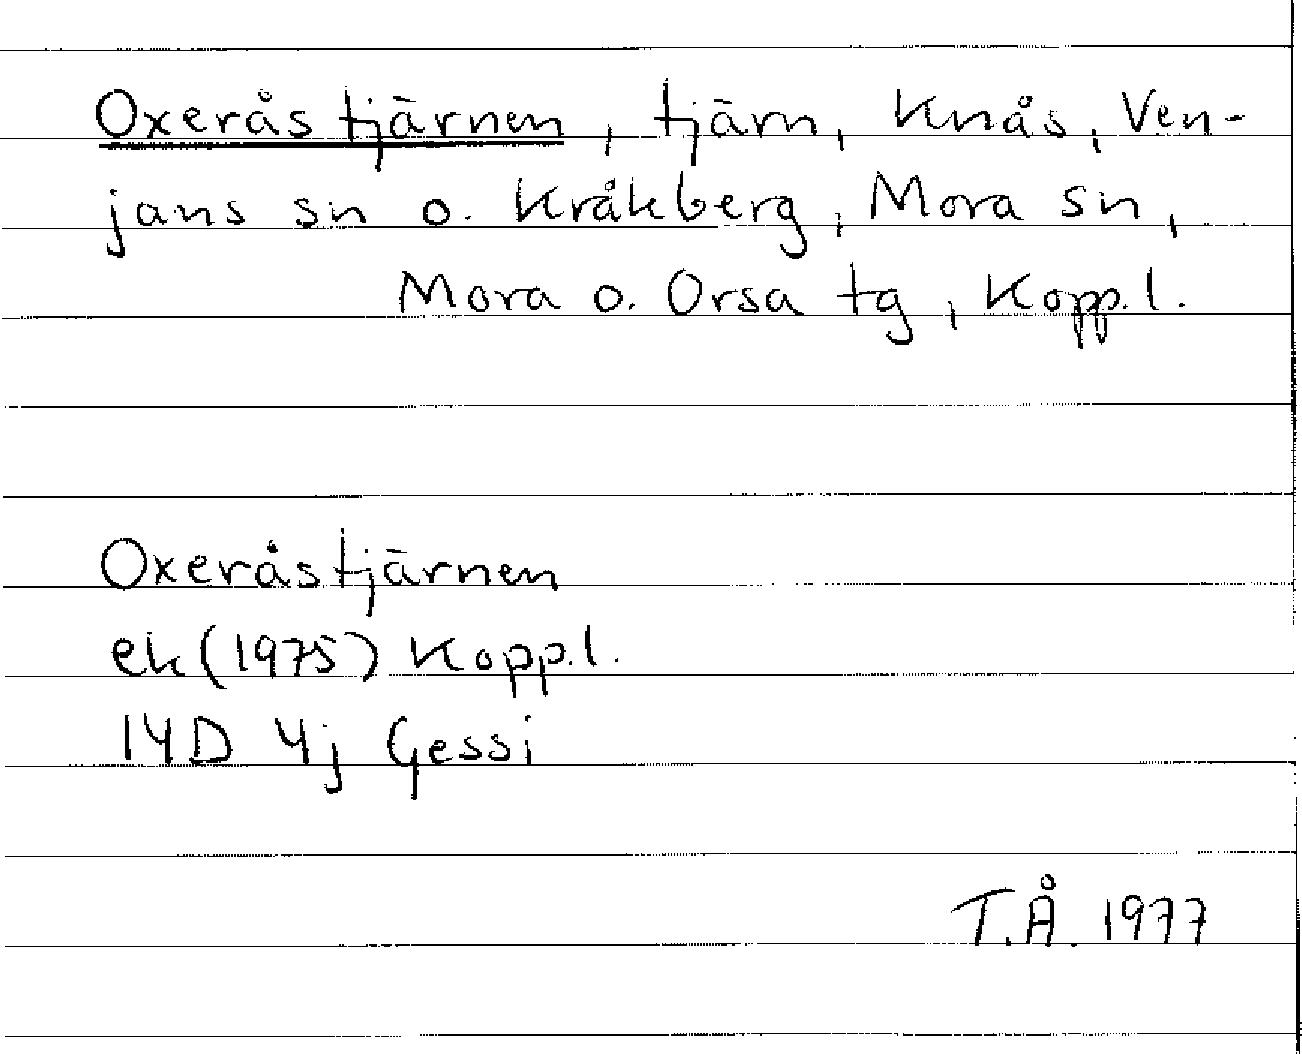 Oxeråstjärnen, tjärn, Knås, Ven-
jans sn o. Kråkberg, Mora sn,
Mora o. Orsa tg, Kopp.l.
Oxeråstjärnen
ek (1975) Kopp.l.
14D 4j Gessi
T.Å. 1977